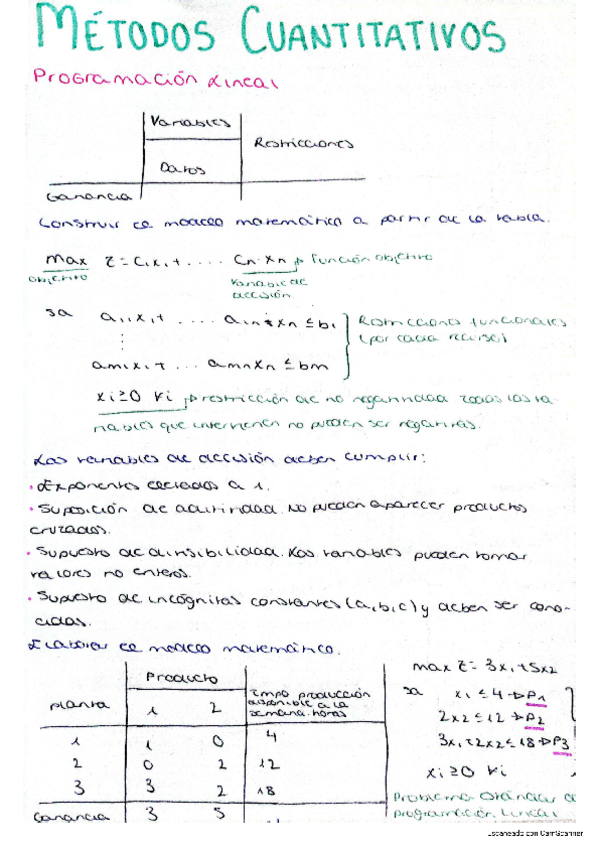 MÉTODOS CUANTITATIVOS
Programación Lineal
Variables
Restricciones
Datos
Ganancia
Construir el modelo matemático a partir de la tabla.
max z = c₁x₁ + .... cn·xn → Función objetivo
objetivo
variable de
decisión
sa a₁₁x₁ + .... a₁n·xn ≤ b₁ Restricciones funcionales
(por cada recurso)
⋮
am₁x₁ + ... amnxn ≤ bm
xi ≥ 0 ∀i → restricción de no negatividad todas las va-
riables que intervienen no pueden ser negativas.
Las variables de decisión deben cumplir:
· Exponentes elevados a 1.
· Suposición de aditividad. No pueden aparecer productos
cruzados.
· Supuesto de divisibilidad. Las variables pueden tomar
valores no enteros.
· Supuesto de incógnitas constantes (a, b, c) y deben ser cono-
cidas.
Elaborar el modelo matemático.
Producto
planta 1 2 Tmpo producción
disponible a la
semana. horas
1 1 0 4
2 0 2 12
3 3 2 18
Ganancia 3 5
max z = 3x₁ + 5x₂
sa x₁ ≤ 4 → P1
2x₂ ≤ 12 → P2
3x₁ + 2x₂ ≤ 18 → P3
xi ≥ 0 ∀i
Problema estándar d
programación lineal
Escaneado con CamScanner